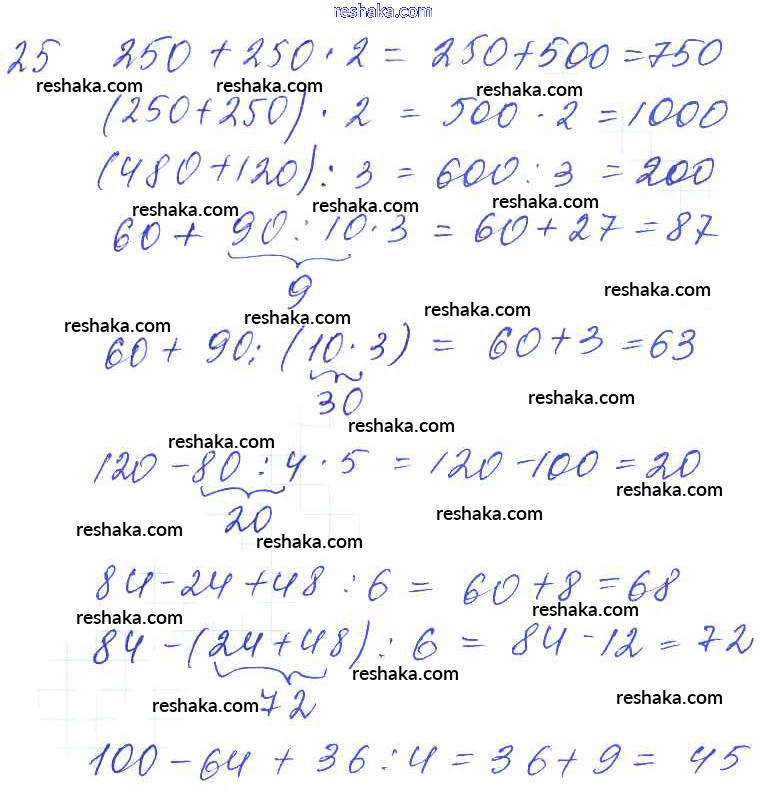 reshaka.com
25 250 + 250 · 2 = 250 + 500 = 750
reshaka.com reshaka.com reshaka.com
(250 + 250) · 2 = 500 · 2 = 1000
(480 + 120) : 3 = 600 : 3 = 200
reshaka.com reshaka.com reshaka.com
60 + 90 : 10 · 3 = 60 + 27 = 87
9
reshaka.com
reshaka.com reshaka.com reshaka.com
60 + 90 : (10 · 3) = 60 + 3 = 63
30
reshaka.com
reshaka.com reshaka.com
120 - 80 : 4 · 5 = 120 - 100 = 20
reshaka.com
20
reshaka.com reshaka.com reshaka.com
84 - 24 + 48 : 6 = 60 + 8 = 68
reshaka.com reshaka.com
84 - (24 + 48) : 6 = 84 - 12 = 72
reshaka.com
72
reshaka.com reshaka.com
100 - 64 + 36 : 4 = 36 + 9 = 45